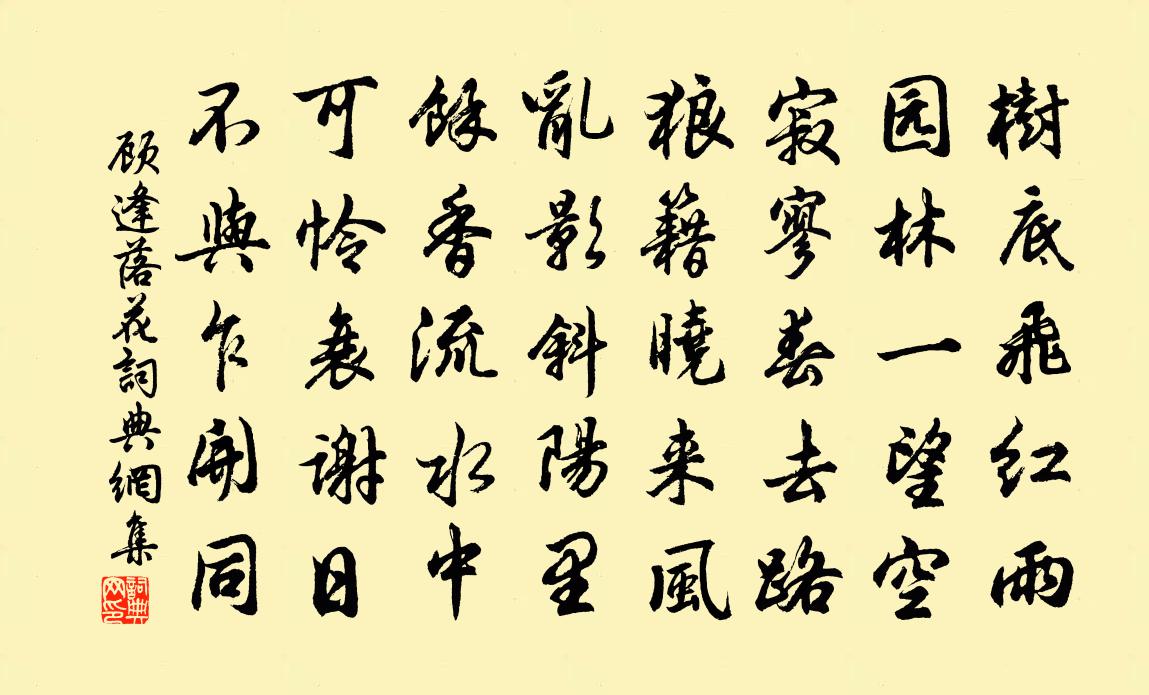 樹底飛紅雨
园林一望空
寂寥春去路
狼籍曉来風
亂影斜陽里
餘香流水中
可怜衰謝日
不與乍開同
顾逢落花詞典網集
詞典网印